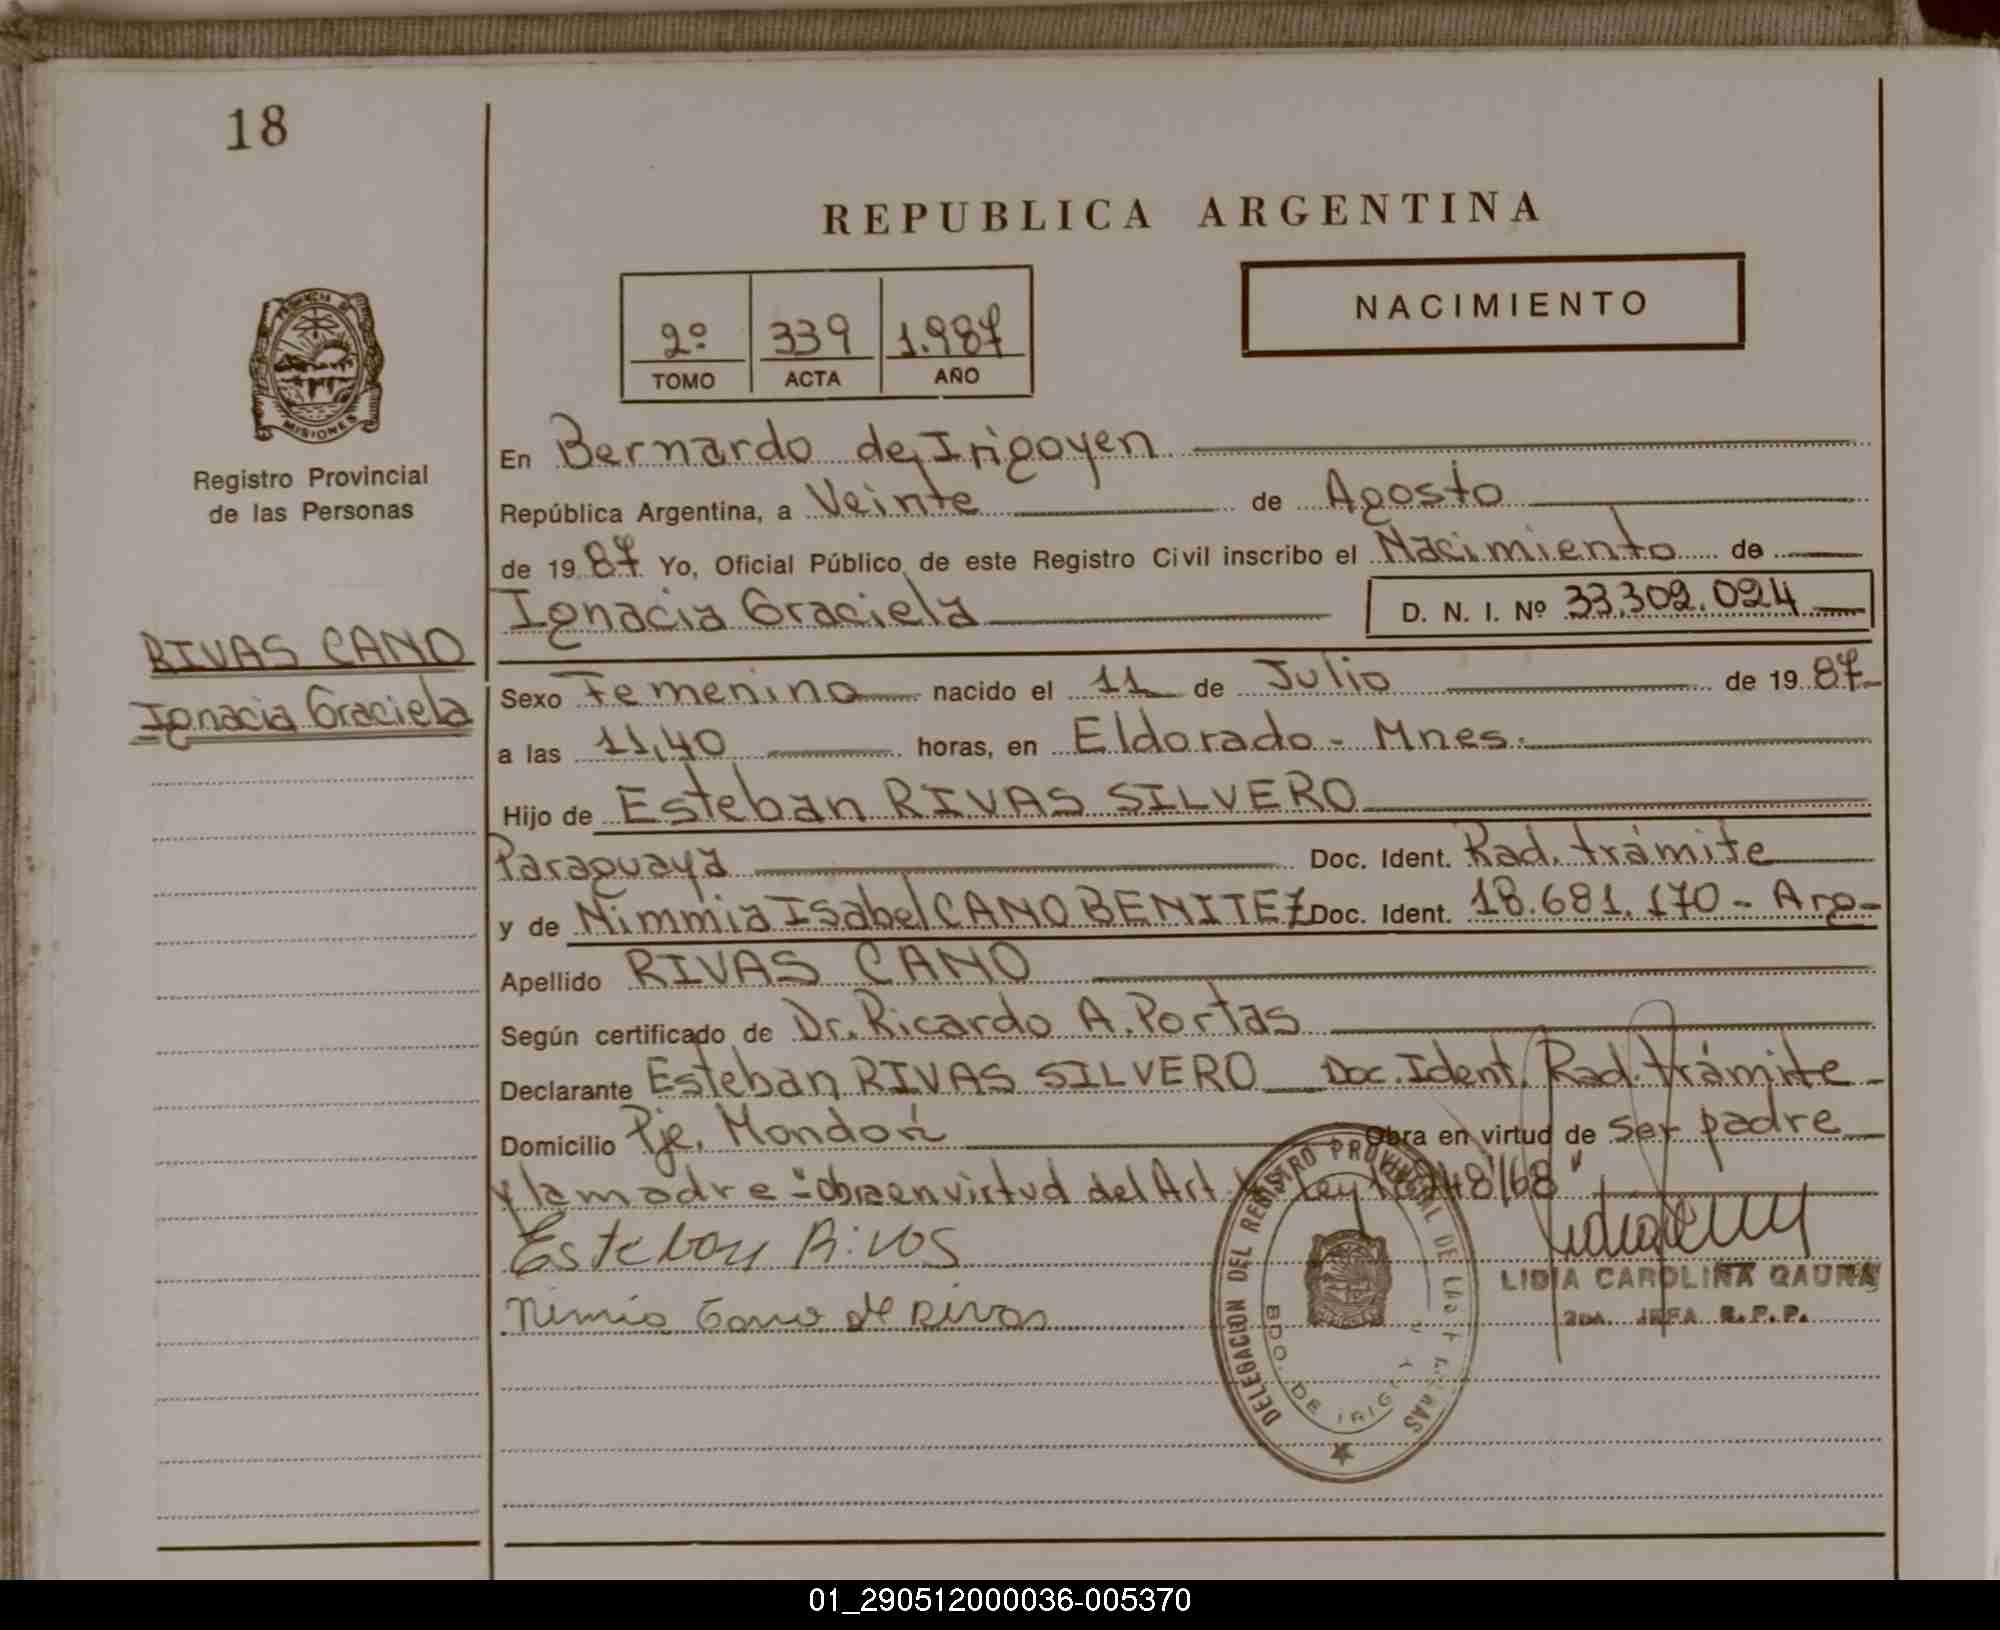 18
REPUBLICA ARGENTINA
NACIMIENTO
2º 339 1.987
TOMO ACTA AÑO
MISIONES
Registro Provincial
de las Personas
RIVAS CANO
Ignacia Graciela
En Bernardo de Irigoyen
República Argentina, a Veinte de Agosto
de 1987 Yo, Oficial Público de este Registro Civil inscribo el Nacimiento de
Ignacia Graciela D. N. I. Nº 33.302.024
Sexo Femenino nacido el 11 de Julio de 1987
a las 11,40 horas, en Eldorado - Mnes.
Hijo de Esteban RIVAS SILVERO
Paraguaya Doc. Ident. Rad. trámite
y de Nimmia Isabel CANO BENITEZ Doc. Ident. 18.681.170 - Arg-
Apellido RIVAS CANO
Según certificado de Dr. Ricardo A. Portas
Declarante Esteban RIVAS SILVERO Doc. Ident. Rad. trámite
Domicilio Pje. Mondorí Obra en virtud de ser padre
y la madre - "obra en virtud del Art Ley 18248/68"
Esteban Rivas
Nimia Cano de Rivas
LIDIA CAROLINA GAUNA
2da. JEFA R.P.P.
DELEGACION DEL REGISTRO PROVINCIAL DE LAS PERSONAS
BDO. DE IRIGOYEN
01_290512000036-005370